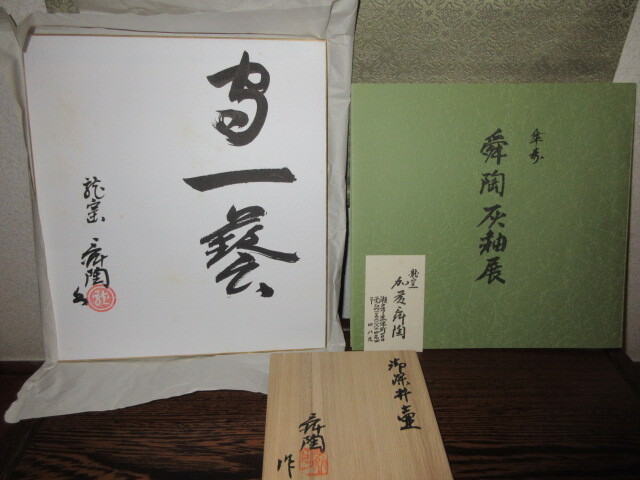 守一藝
龍窯 舜陶
傘寿
舜陶灰釉展
龍窯
加藤舜陶
瀬戸市
御深井壷
舜陶
作